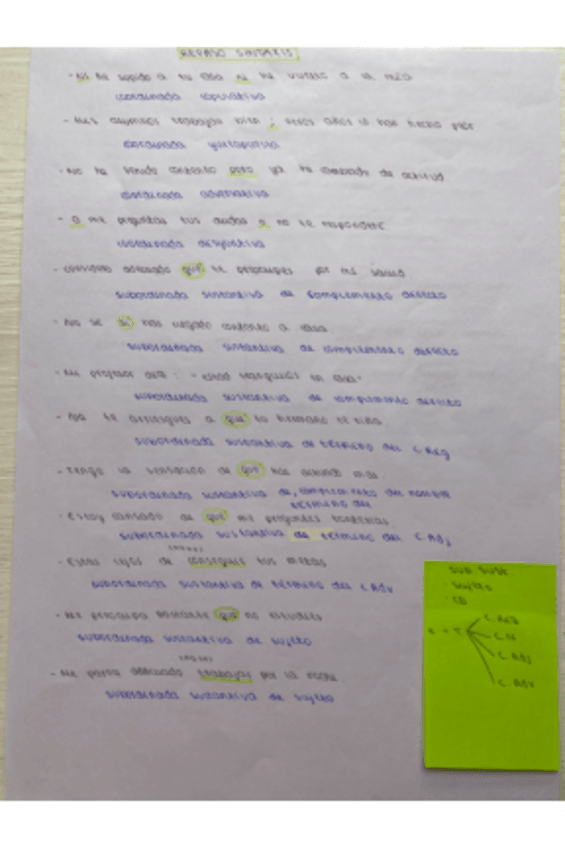 REPASO SINTAXIS
- Ni he subido a tu casa ni he vuelto a la mía
coordinada copulativa
- Mis alumnos trabajan bien ; otros años lo han hecho peor
coordinada yuxtapuesta
- No ha venido contento pero ya ha cambiado de actitud
coordinada adversativa
- O me preguntas tus dudas o no te responderé
coordinada disyuntiva
- considero adecuado que te preocupes por mi salud
subordinada sustantiva de complemento directo
- No sé si has llegado contento a casa.
subordinada sustantiva de complemento directo
- Mi profesor : "estad tranquilos en casa"
subordinada sustantiva de complemento directo
- te arriesgues a que tu hermano te riña
subordinada sustantiva de término del C.Reg
- Tengo la sensación de que has actuado mal.
subordinada sustantiva de complemento del nombre
término del
- Estoy cansado de que me preguntes tonterías.
subordinada sustantiva de término del C.Adj
- Estás lejos de conseguir tus metas
subordinada sustantiva de término del C.Adv
- Me preocupa bastante que no estudies
subordinada sustantiva de sujeto
- Me parece adecuado trabajar por la noche.
subordinada sustantiva de sujeto
SUB. SUST.
· Sujeto
· CD
E + T
C. REG
C. N
C. Adj
C. Adv